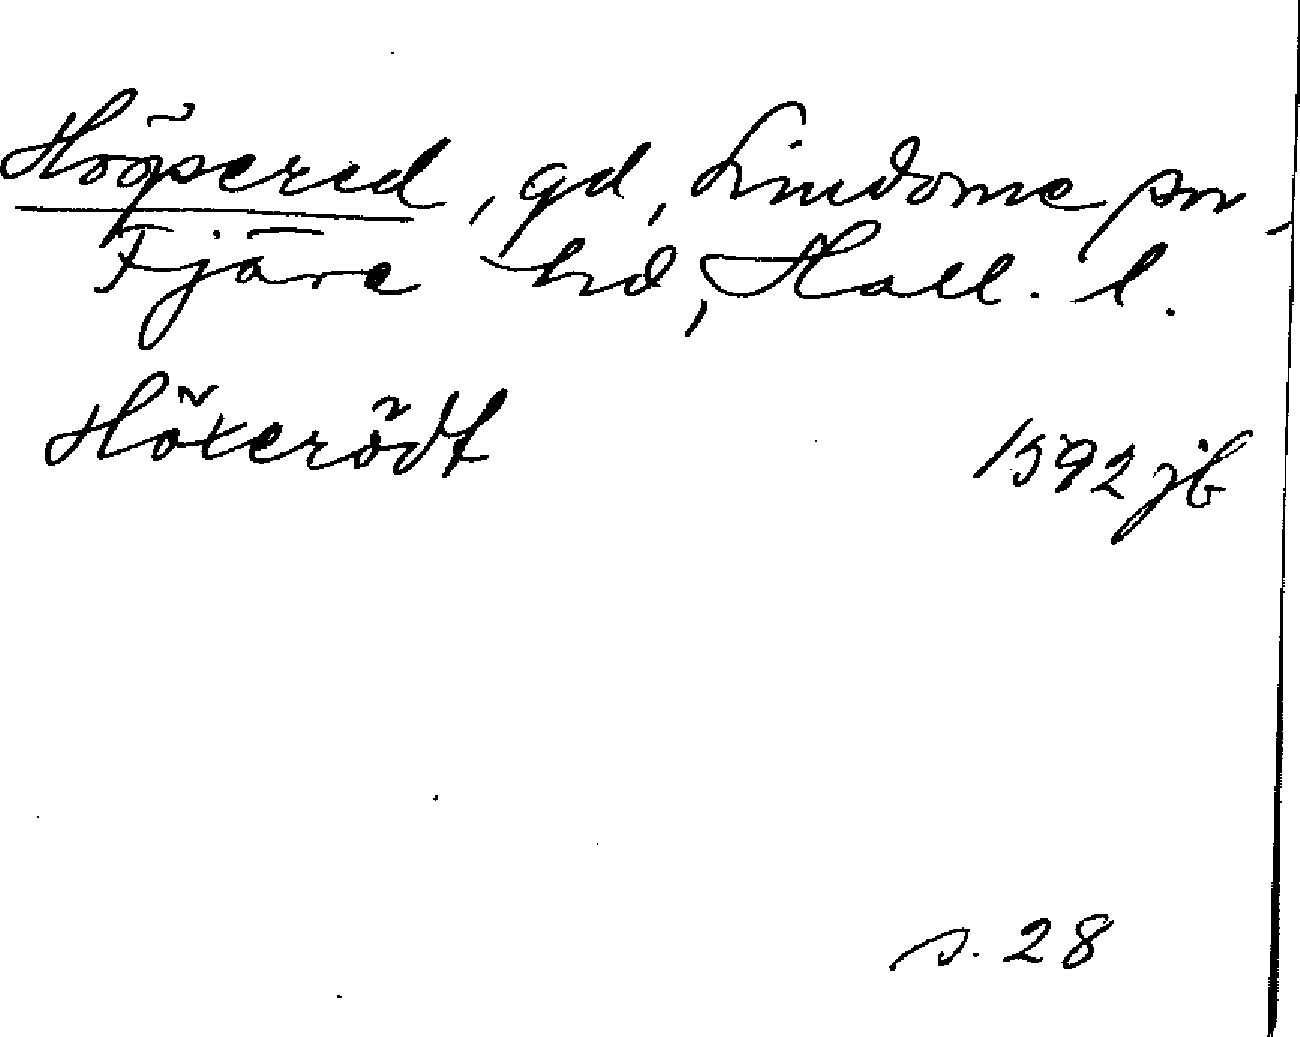 Högsered, gd, Lindome sn,
Fjäre hd, Hall. l.
Höxerödt 1592 jb
s. 28